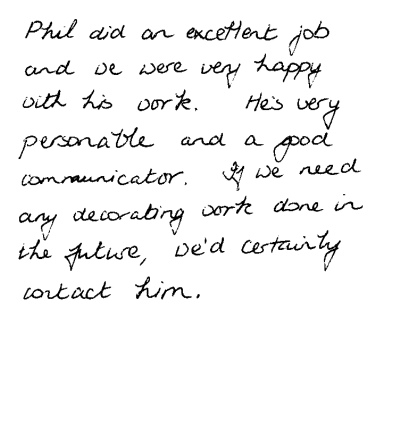 Phil did an excellent job
and we were very happy
with his work. He's very
personable and a good
communicator. If we need
any decorating work done in
the future, we'd certainly
contact him.